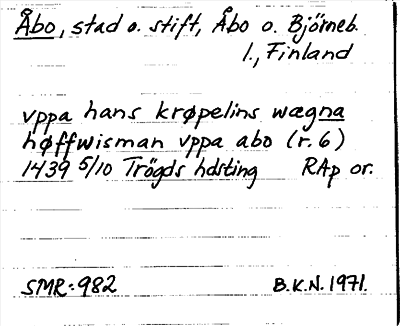 Åbo, stad o. stift, Åbo o. Björneb.
l., Finland
vppa hans krøpelins wægna
høffwisman vppa abo (r. 6)
1439 5/10 Trögds hdsting RAp or.
SMR: 982 B.K.N. 1971.